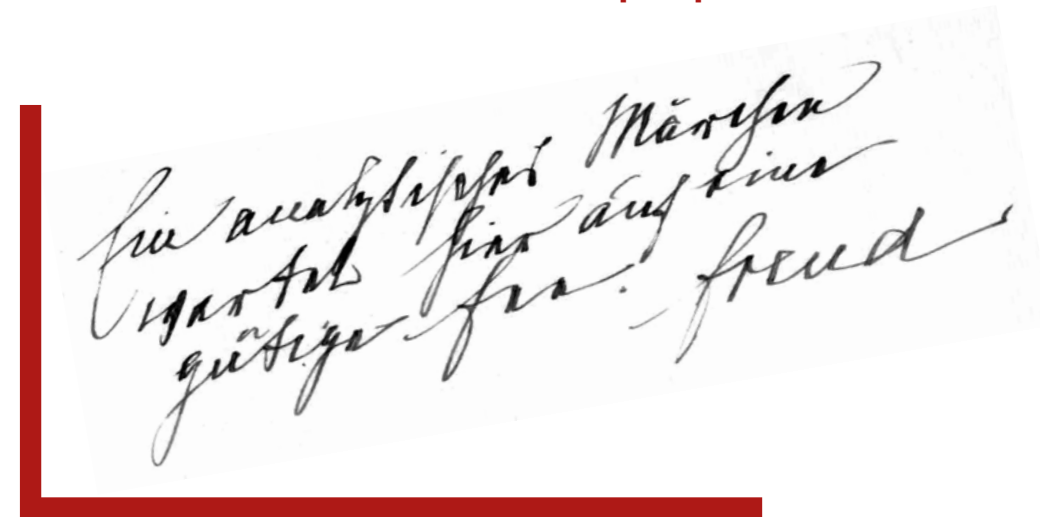 Ein analytisches Märchen
wartet hier auf eine
gütige Fee. Freud